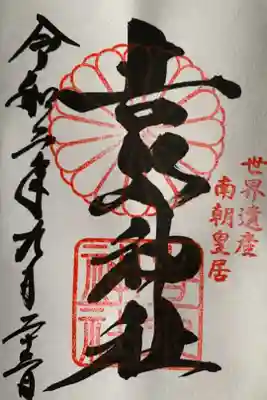 世界遺産
南朝皇居
吉水神社
令和三年九月二十三日